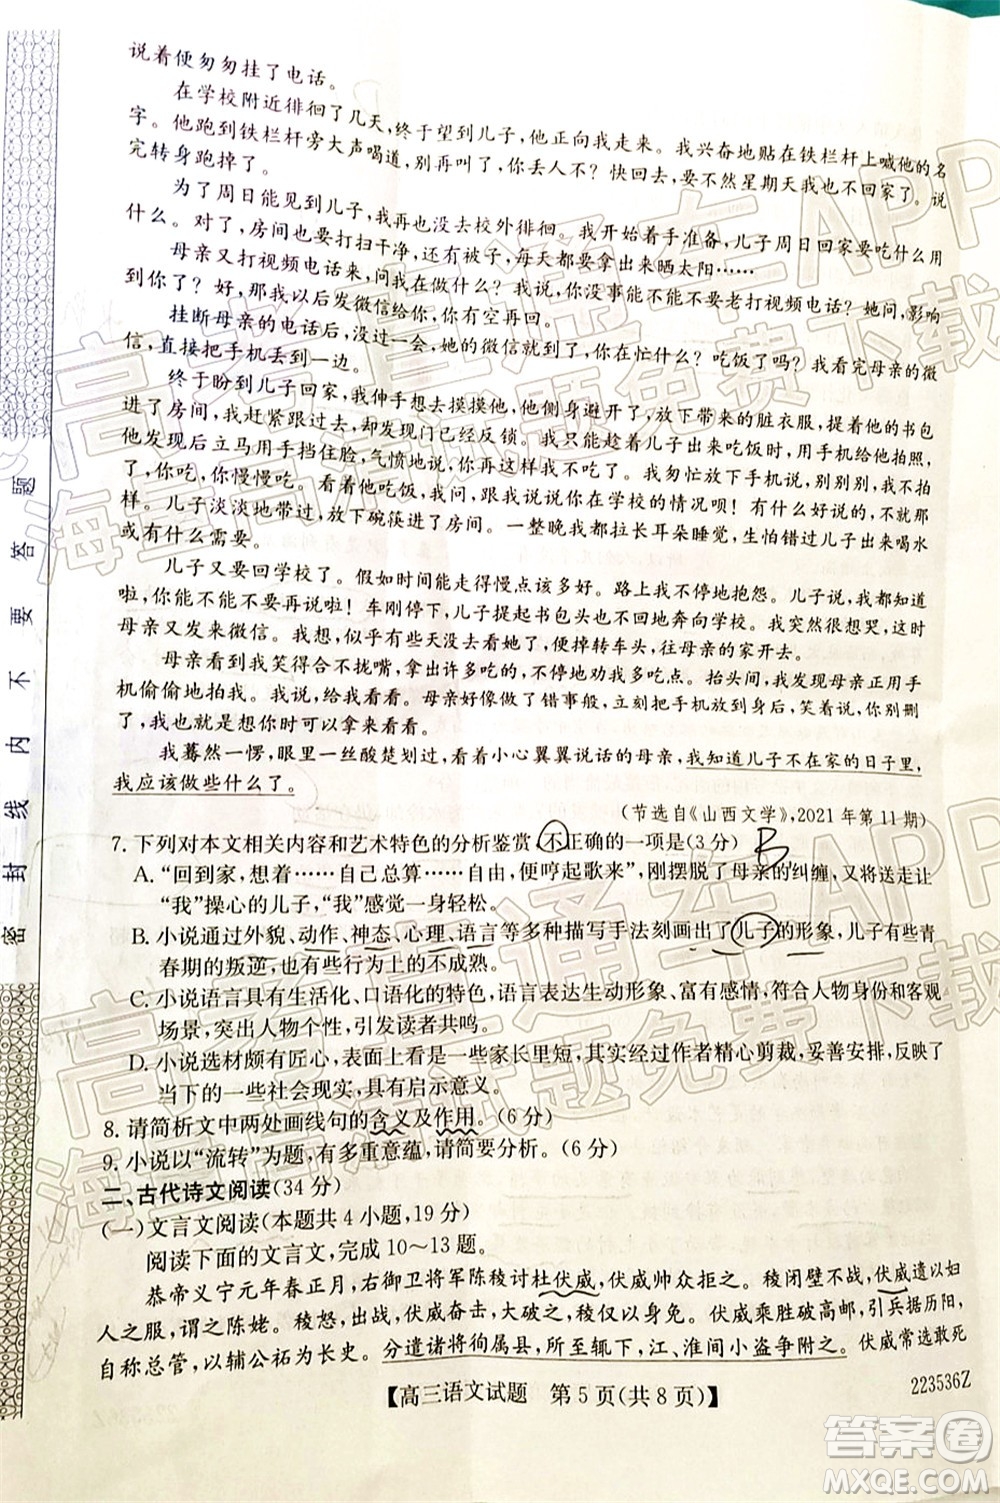 说着便匆匆挂了电话。
在学校附近徘徊了几天,终于望到儿子,他正向我走来。我兴奋地贴在铁栏杆上喊他的名
字。他跑到铁栏杆旁大声喝道,别再喊了,你丢人不?快回去,要不然星期天我也不回家了。说
完转身跑掉了。
为了周日能见到儿子,我再也没去校外徘徊。我开始着手准备,儿子周日回家要吃什么用
什么。对了,房间也要打扫干净,每天都要拿出来晒太阳……
母亲又打视频电话来,我在做什么?我说,你能不能不要老打视频电话?她问,影响
你了?好,那我以后发微信给你,你有空再回。
挂断母亲的电话后,没过一会,她的微信就来了,你在忙什么?吃饭了吗?我看完母亲的微
信,直接把手机丢到一边。
终于盼到儿子回家,我伸手想去摸摸他,他侧身避开了,放下带来的脏衣服,提着手机就
进了房间,我赶紧跟过去,却发现门已经反锁。敲着门喊儿子出来吃饭,
儿子立马用手挡住脸,气愤地说,你再这样我不吃了。我匆忙收起手机说,别别别,我不拍
了,你吃,你慢慢吃。看着他吃饭,我问,能跟我说说你在学校的情况吗?有什么好说的,不
就那样。儿子淡淡地带过,放下碗筷进了房间。一整晚我都拉长耳朵睡觉,生怕错过儿子出来喝水
或有什么需要。
儿子又要回学校了。假如时间能走得慢点该多好。路上我不停地抱怨。又来啦,又来
啦,你能不能不要再说啦!车刚停下,儿子提起书包头也不回地奔向学校。我突然很想哭,这时
母亲又发来微信。我想,似乎有些天没去看她了,便掉转车头,往母亲的家开去。
母亲看到我笑得合不拢嘴,拿出许多吃的,不停地劝我多吃点。抬头间,母亲正在用手
机偷偷地拍我。我说,给我看看。母亲好像做了错事般,立刻把手机放到身后,说,你别删
了,我想你时可以拿来看看。
我蓦然一愣,眼里一丝酸楚划过,看着小心翼翼说话的母亲,我知道儿子不在家的日子里,
我应该做些什么了。
(节选自《山西文学》,2021年第11期)
7. 下列对本文相关内容和艺术特色的分析鉴赏,不正确的一项是(3分) B
A. “回到家,……自己总算……自由,便哼起歌来”,刚摆脱了母亲的纠缠,又送走了需要
“我”操心的儿子,“我”感觉一身轻松。
B. 小说通过外貌、动作、神态、心理、语言等多种描写手法刻画出了儿子的形象,儿子有些青
春期的叛逆,有些心理上的不成熟。
C. 小说语言具有生活化、口语化的特色,语言表达生动形象、富有感情,符合人物身份和客观
场景,突出人物个性,引发读者共鸣。
D. 小说选材颇有匠心,看起来是一些家长里短,其实经过作者精心剪裁,妥善安排,反映了
当下的一些社会现实,具有启示意义。
8. 请简析文中两处画线句的含义及作用。(6分)
9. 小说以“流转”为题,有多重意蕴,请简要分析。(6分)
二、古代诗文阅读(34分)
(一)文言文阅读(本题共4小题,19分)
阅读下面的文言文,完成10~13题。
恭帝义宁元年春正月,右御卫将军陈稜讨杜伏威,伏威帅众拒之。稜闭壁不战,伏威遗以妇
人之服,谓之陈姥。稜怒,出战,伏威奋击,大破之,稜仅以身免。伏威乘胜破高邮,引兵据历阳,
自称总管,以辅公祏为长史。分遣诸将徇属县,所至辄下,江、淮间小盗争附之。伏威常选敢死
【高三语文试题 第5页(共8页)】
223536Z
密 封 线 内 不 要 答 题
高考直通车APP
海量高清试题免费下载
高考直通车APP
海量高清试题免费下载
答案圈
MXQE.COM